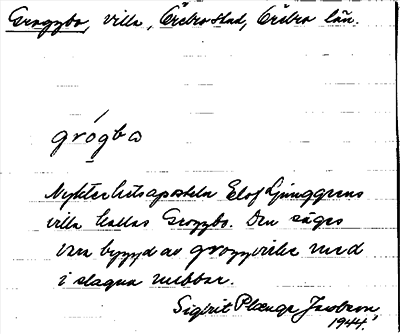 Groggbo, villa, Örebro stad, Örebro län.
grógbo
Nykterhetsaposteln Elof Ljunggrens
villa kallas Groggbo. Den säges
vara byggd av groggvirke med
i slagna nubbar.
Sigbrit Plænge Jacobson
1944.